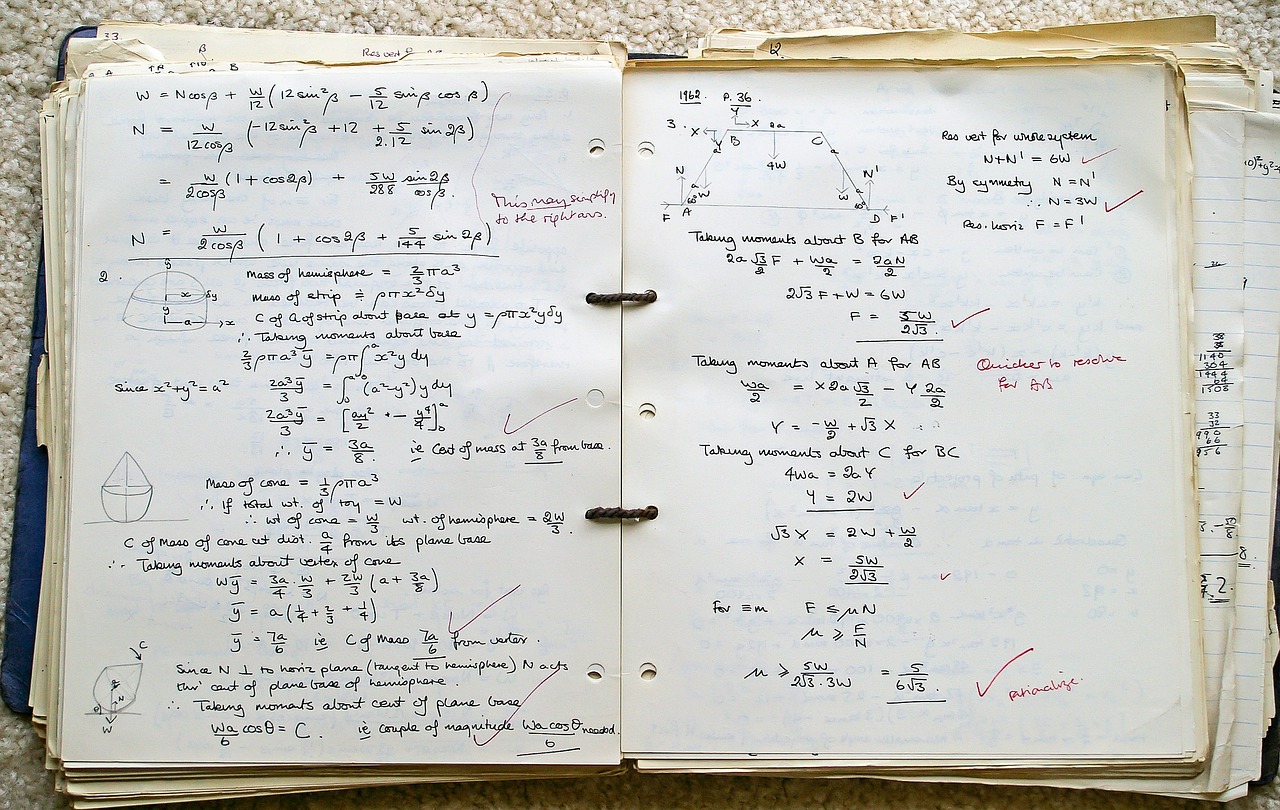 33.
β
Res vert
A
B
W = Ncosβ + W/12 (12 sin²β − 5/12 sinβ cosβ)
N = W/12cosβ (−12sin²β + 12 + 5/2.12 sin 2β)
= W/2cosβ (1 + cos2β) + 5W/288 sin2β/cosβ.
This may simplify
to the right ans.
N = W/2cosβ (1 + cos2β + 5/144 sin 2β)
2.
y
x
δy
y
a
x
Mass of hemisphere = 2/3 πa³
Mass of strip ≑ ρπx²δy
C of G of strip about base at y = ρπx²yδy
∴ Taking moments about base
2/3 ρπa³ȳ = ρπ∫₀ᵃ x²y dy
Since x²+y² = a² 2a³ȳ/3 = ∫₀ᵃ (a²−y²) y dy
2a³ȳ/3 = [ay²/2 − y⁴/4]₀ᵃ
∴ ȳ = 3a/8 ie Cent of mass at 3a/8 from base.
Mass of cone = 1/3 ρπa³
∴ If total wt. of toy = W
∴ wt of cone = W/3 wt. of hemisphere = 2W/3.
C of Mass of cone at dist. a/4 from its plane base
∴ Taking moments about vertex of cone
Wȳ = 3a/4 . W/3 + 2W/3 (a + 3a/8)
ȳ = a(1/4 + 2/3 + 1/4)
ȳ = 7a/6 ie C of Mass 7a/6 from vertex.
C
N
θ
W
Since N ⊥ to horiz plane (tangent to hemisphere) N acts
thro' cent of plane base of hemisphere.
∴ Taking moments about cent of plane base
Wa/6 cosθ = C. ie couple of magnitude Wa cosθ/6 needed.
12.
1962. P. 36.
3.
Y
X
X
2a
B
C
Y
a
a
4W
N
a
W
W
a
N'
60°
60°
F
A
D
F'
Res vert for whole system
N+N' = 6W
By symmetry N = N'
∴ N = 3W
Res. horiz F = F'
Taking moments about B for AB
2a √3/2 F + Wa/2 = 2aN/2
2√3 F + W = 6W
F = 5W/2√3.
Taking moments about A for AB
Quicker to resolve
for AB
Wa/2 = X 2a √3/2 − Y 2a/2
Y = −W/2 + √3 X
Taking moments about C for BC
4Wa = 2aY
Y = 2W
√3 X = 2W + W/2
X = 5W/2√3
For ≡m F ≤ μN
μ ≥ F/N
μ ≥ 5W/2√3.3W = 5/6√3.
rationalize.
38
38
1140
304
1444
64
1508
33
32
990
66
956
8.
2.